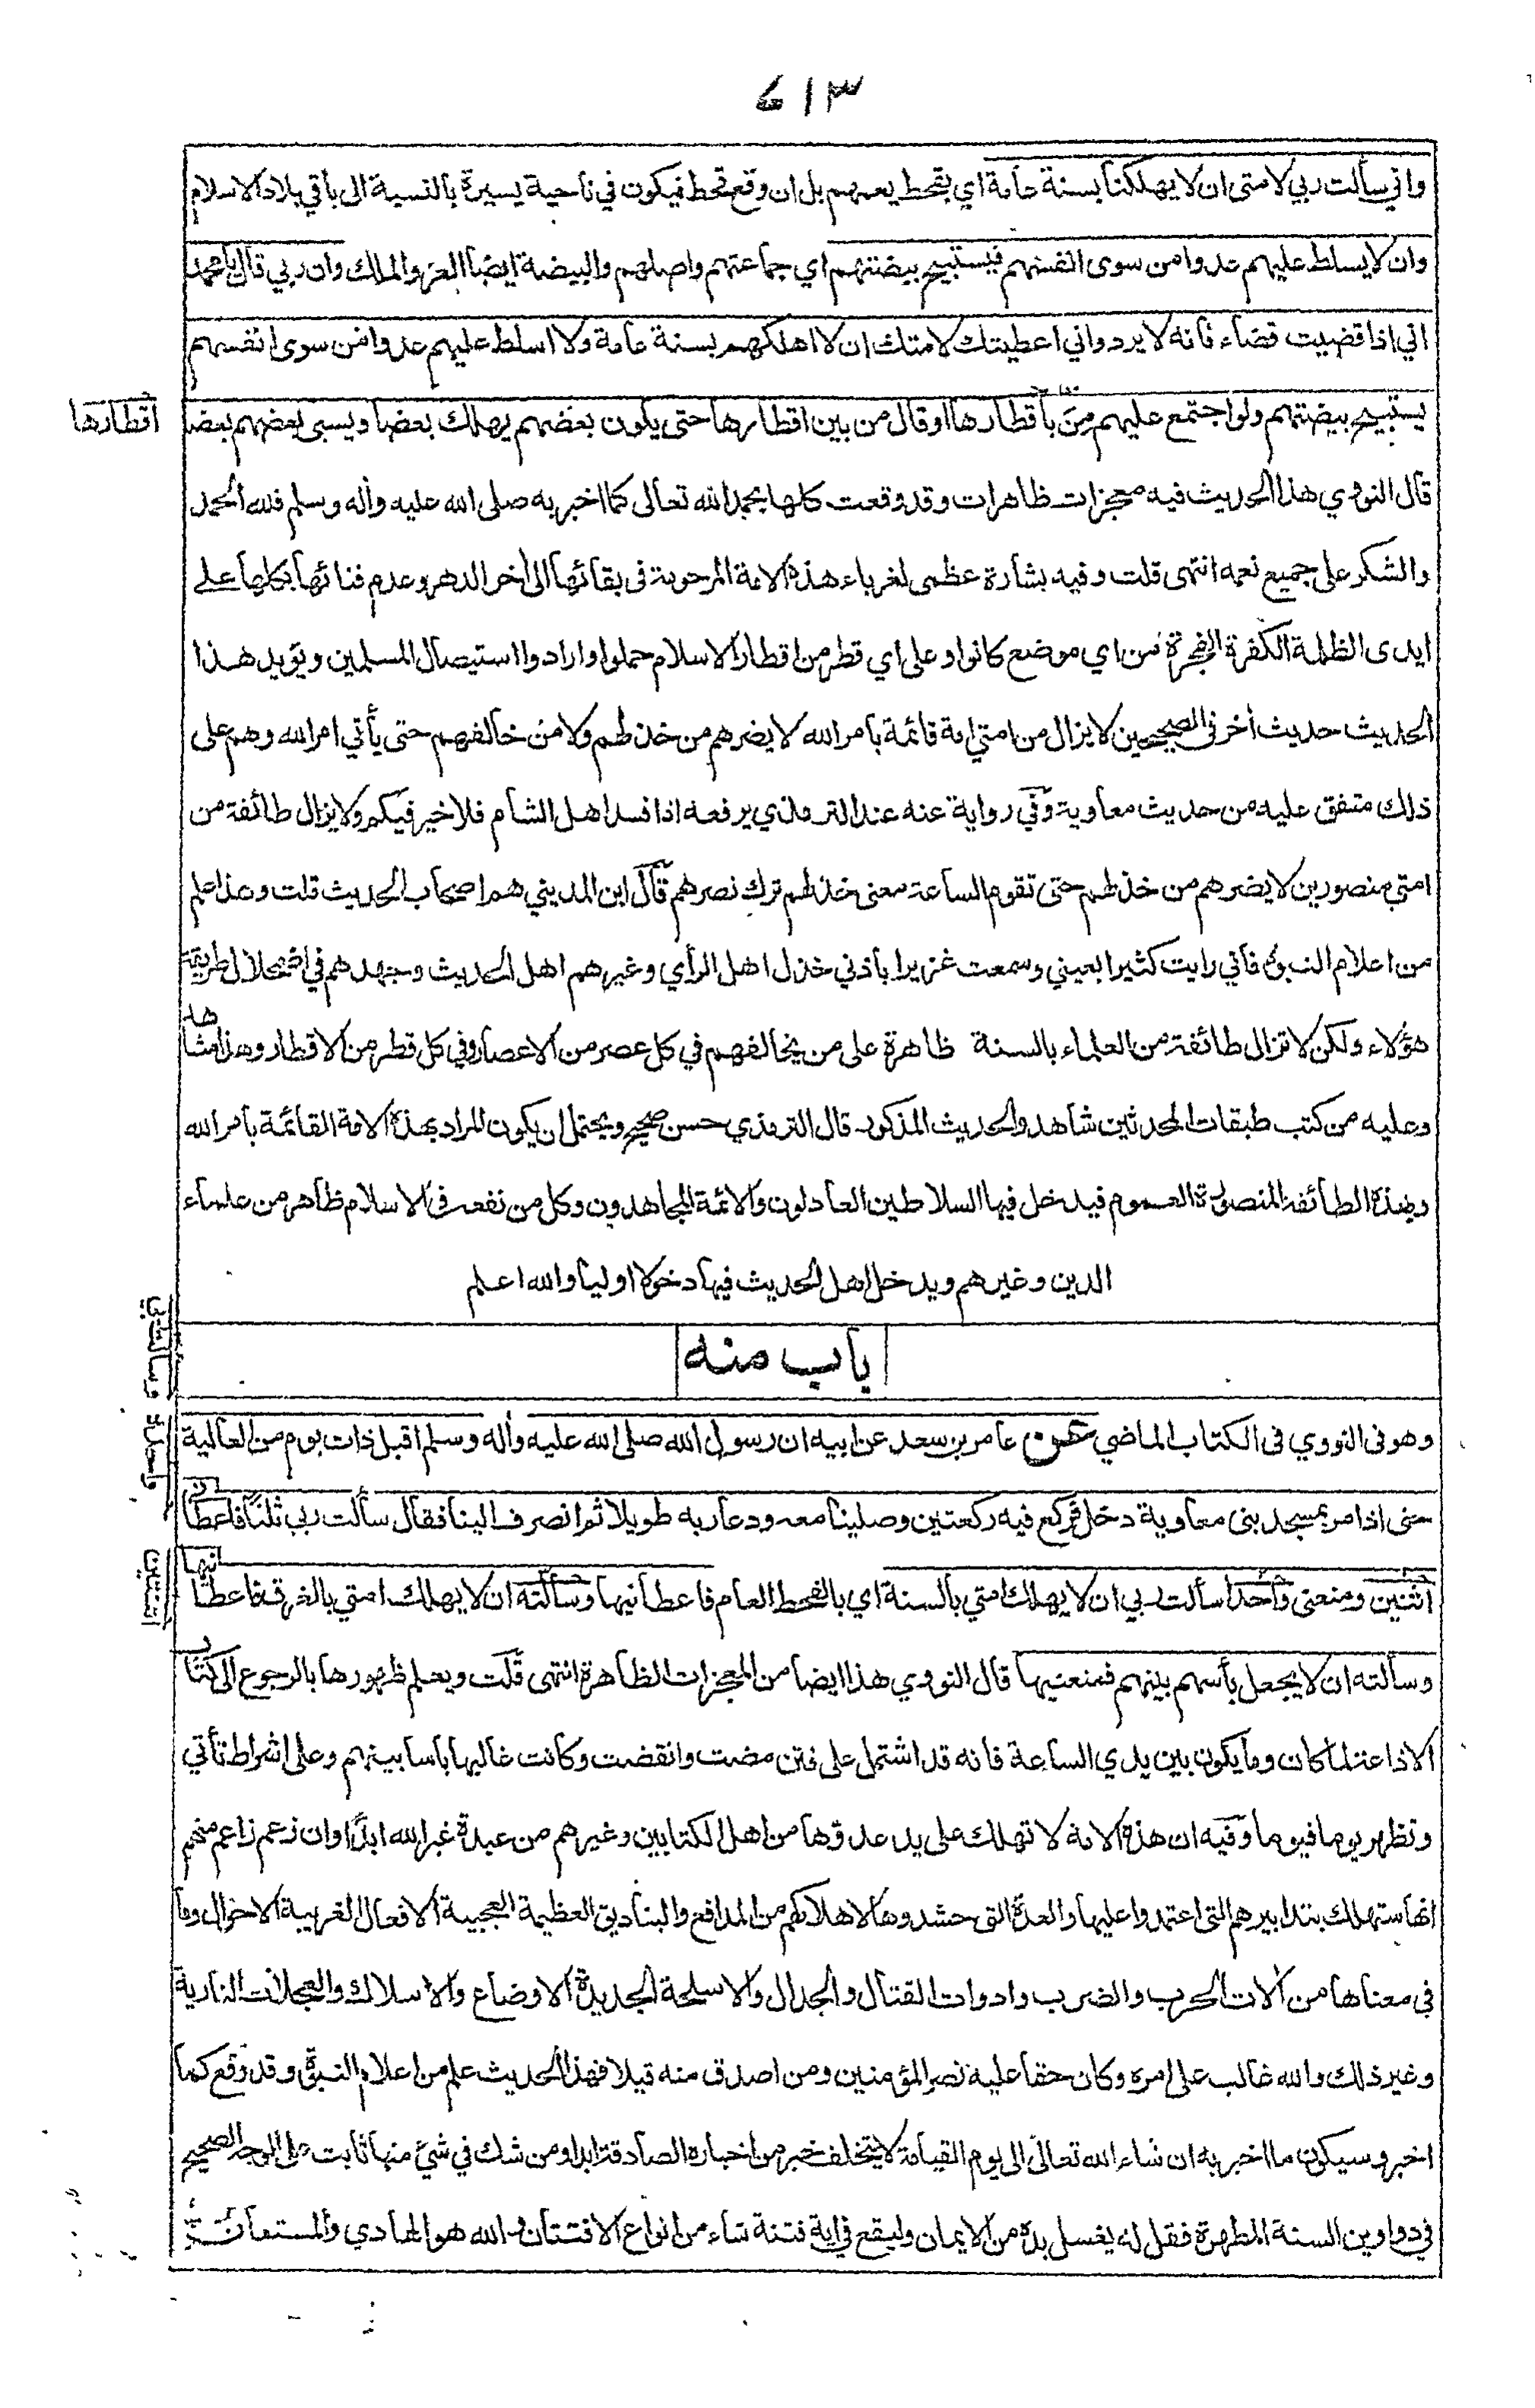 ٦١٣
واني سألت ربي لامتى ان لا يهلكنا بسنة عامة اي بقحط يعمهم بل ان وقع قحط فيكون في ناحية يسيرة بالنسبة الى باقي بلاد الاسلام
وان لا يسلط عليهم عدوا من سوى انفسهم فيستبيح بيضتهم اي جماعتهم واصلهم والبيضة ايضا العز والملك وان ربي قال يا محمد
اني اذا قضيت قضاء فانه لا يرد واني اعطيتك لامتك ان لا اهلكهم بسنة عامة ولا اسلط عليهم عدوا من سوى انفسهم
يستبيح بيضتهم ولو اجتمع عليهم من بأقطارها او قال من بين اقطارها حتى يكون بعضهم يهلك بعضا ويسبى بعضهم بعضا
اقطارها
قال النووي هذا الحديث فيه معجزات ظاهرات وقد وقعت كلها بحمد الله تعالى كما اخبر به صلى الله عليه وأله وسلم فلله الحمد
والشكر على جميع نعمه انتهى قلت وفيه بشارة عظمى لغرباء هذه الامة المرحومة فى بقائها الى أخر الدهر وعدم فنائها بكلها على
ايدى الظلمة الكفرة الفجرة من اي موضع كانوا وعلى أي قطر من اقطار الاسلام حملوا وارادوا استيصال المسلمين ويؤيد هذا
الحديث حديث أخر فى الصحيحين لا يزال من امتي امة قائمة بامر الله لا يضرهم من خذلهم ولا من خالفهم حتى يأتي امر الله وهم على
ذلك متفق عليه من حديث معاوية وفي رواية عنه عند الترمذي يرفعه اذا فسد اهل الشام فلا خير فيكم ولا يزال طائفة من
امتي منصورين لا يضرهم من خذلهم حتى تقوم الساعة معنى خذلهم ترك نصرهم قال ابن المديني هم اصحاب الحديث قلت وهذا علم
من اعلام النبوة فأني رايت كثيرا بعيني وسمعت غزيرا بأذني خذل اهل الرأي وغيرهم اهل الحديث وجهدهم في اضمحلال طريقة
هؤلاء ولكن لا تزال طائفة من العلماء بالسنة ظاهرة على من يخالفهم في كل عصر من الاعصار وفي كل قطر من الاقطار وهذا مشاهد
وعليه من كتب طبقات المحدثين شاهد والحديث المذكور قال الترمذي حسن صحيح ويحتمل ان يكون المراد بهذه الامة القائمة بأمر الله
وبهذه الطائفة المنصورة العموم فيدخل فيها السلاطين العادلون والائمة المجاهدون وكل من نفعه فى الاسلام ظاهر من علماء
الدين وغيرهم ويدخل اهل الحديث فيها دخولا اوليا والله اعلم
باب منه
وهو فى النووي فى الكتاب الماضي عن عامر بن سعد عن ابيه ان رسول الله صلى الله عليه وأله وسلم اقبل ذات يوم من العالية
حتى اذا مر بمسجد بنى معاوية دخل فركع فيه ركعتين وصلينا معه ودعا ربه طويلا ثم انصرف الينا فقال سألت ربى ثلثا فاعطاني
اثنين ومنعنى واحدا سألت ربي ان لا يهلك امتي بالسنة اي بالقحط العام فاعطانيها وسألته ان لا يهلك امتي بالغرق فاعطانيها
اثنتين
واحدة وسألت ربي
وسألته ان لا يجعل بأسهم بينهم فمنعنيها قال النووي هذا ايضا من المعجزات الظاهرة انتهى قلت ويعلم ظهورها بالرجوع الى كتاب
الاذاعة لما كان وما يكون بين يدي الساعة فانه قد اشتمل على فتن مضت وانقضت وكانت غالبها بأسا بينهم وعلى اشراط تأتي
وتظهر يوما فيوما وفيه ان هذه الامة لا تهلك على يد عدوها من اهل الكتابين وغيرهم من عبدة غير الله ابدا وان زعم زاعم منهم
انها ستهلك بتدابيرهم التى اعتمدوا عليها والعدة التى حشدوها لاهلاكهم من المدافع والبناديق العظيمة العجيبة الافعال الغريبة الاحوال وما
في معناها من ألات الحرب والضرب وادوات القتال والجدال والاسلحة الجديدة الاوضاع والاسلاك والعجلات النارية
وغير ذلك والله غالب على امره وكان حقا عليه نصر المؤمنين ومن اصدق منه قيلا فهذا الحديث علم من اعلام النبوة وقد وقع كما
اخبر وسيكون ما اخبر به ان شاء الله تعالى الى يوم القيامة لا يتخلف خبر من اخباره الصادقة ابدا ومن شك في شئ منها ثابت على الوجه الصحيح
في دواوين السنة المطهرة فقل له يغسل يده من الايمان وليقع في اية فتنة شاء من انواع الافتتان والله هو الهادي والمستعان